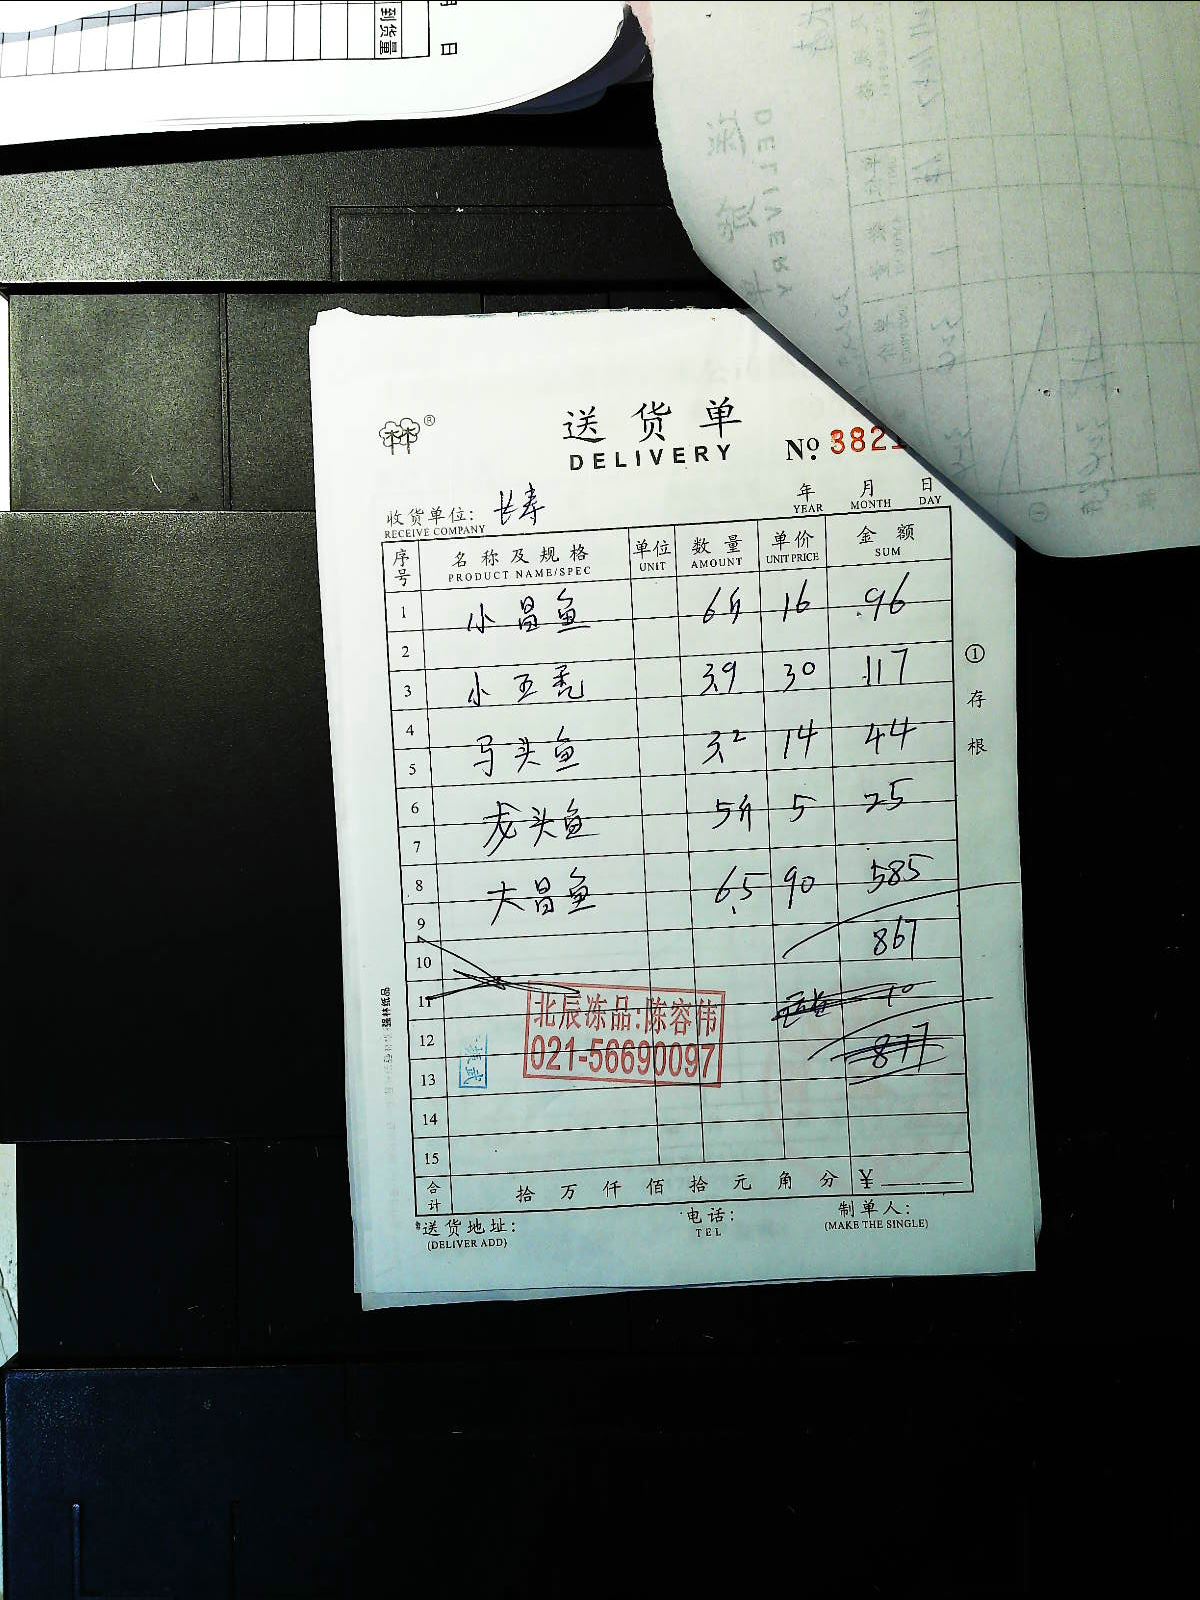 到货量
月 日
送货单
DELIVERY
№ 3821
收货单位: 长寿
RECEIVE COMPANY
年 月 日
YEAR MONTH DAY
序号 名称及规格 单位 数量 单价 金额
PRODUCT NAME/SPEC UNIT AMOUNT UNIT PRICE SUM
1 小昌鱼 6斤 16 96
2
3 小互秃 3.9 30 117
4
5 马头鱼 3.2 14 44
6
7 龙头鱼 5斤 5 25
8
9 大昌鱼 6.5 90 585
867
10
11 10
12 877
13
14
15
北辰冻品:陈容伟
021-56690097
合计 拾 万 仟 佰 拾 元 角 分 ¥
送货地址:
(DELIVER ADD)
电话:
TEL
制单人:
(MAKE THE SINGLE)
① 存根
强林纸品
DELIVERY